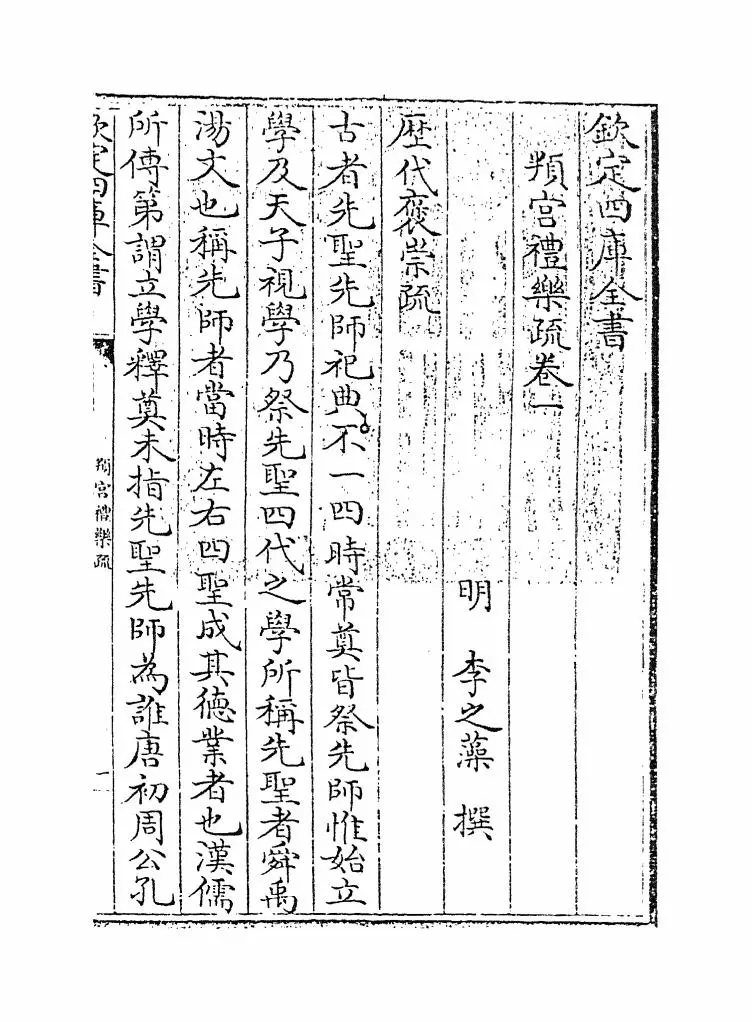 欽定四庫全書
頖宫禮樂疏卷一
明 李之藻 撰
歴代褒崇疏
古者先聖先師祀典不一四時常奠皆祭先師惟始立
學及天子視學乃祭先聖四代之學所稱先聖者舜禹
湯文也稱先師者當時左右四聖成其徳業者也漢儒
所傳第謂立學釋奠未指先聖先師為誰唐初周公孔
欽定四庫全書
頖宫禮樂疏
一